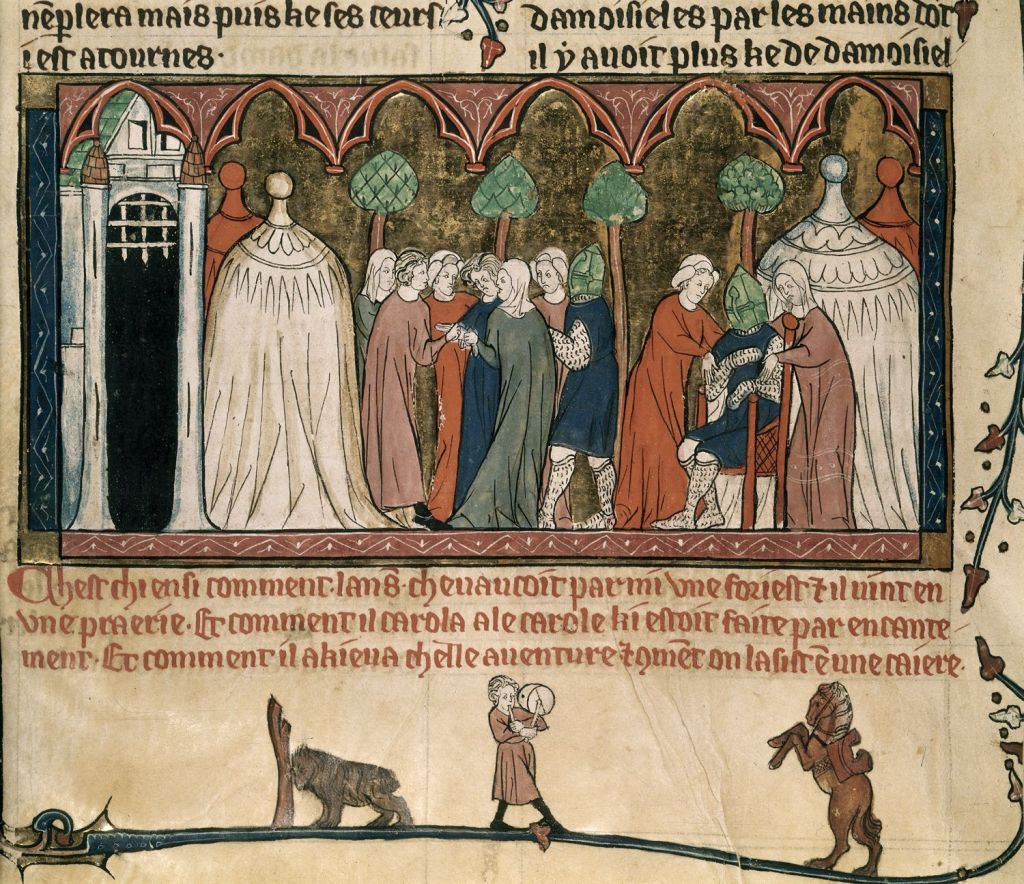 nēplera mais puis ke ses ceurs
i est atournes·
damoisieles par les mains dōt
il y auoit plus ke de damoisiel
Chest chi ensi comment· lanŝ· cheuaucoit parmi vne foriest ⁊ il uint en
vne praerie· Et comment il carola a le carole ki estoit faite par encante
ment· Et comment il akieua chelle auenture ⁊ 9mēt on lasist ē une caiere·